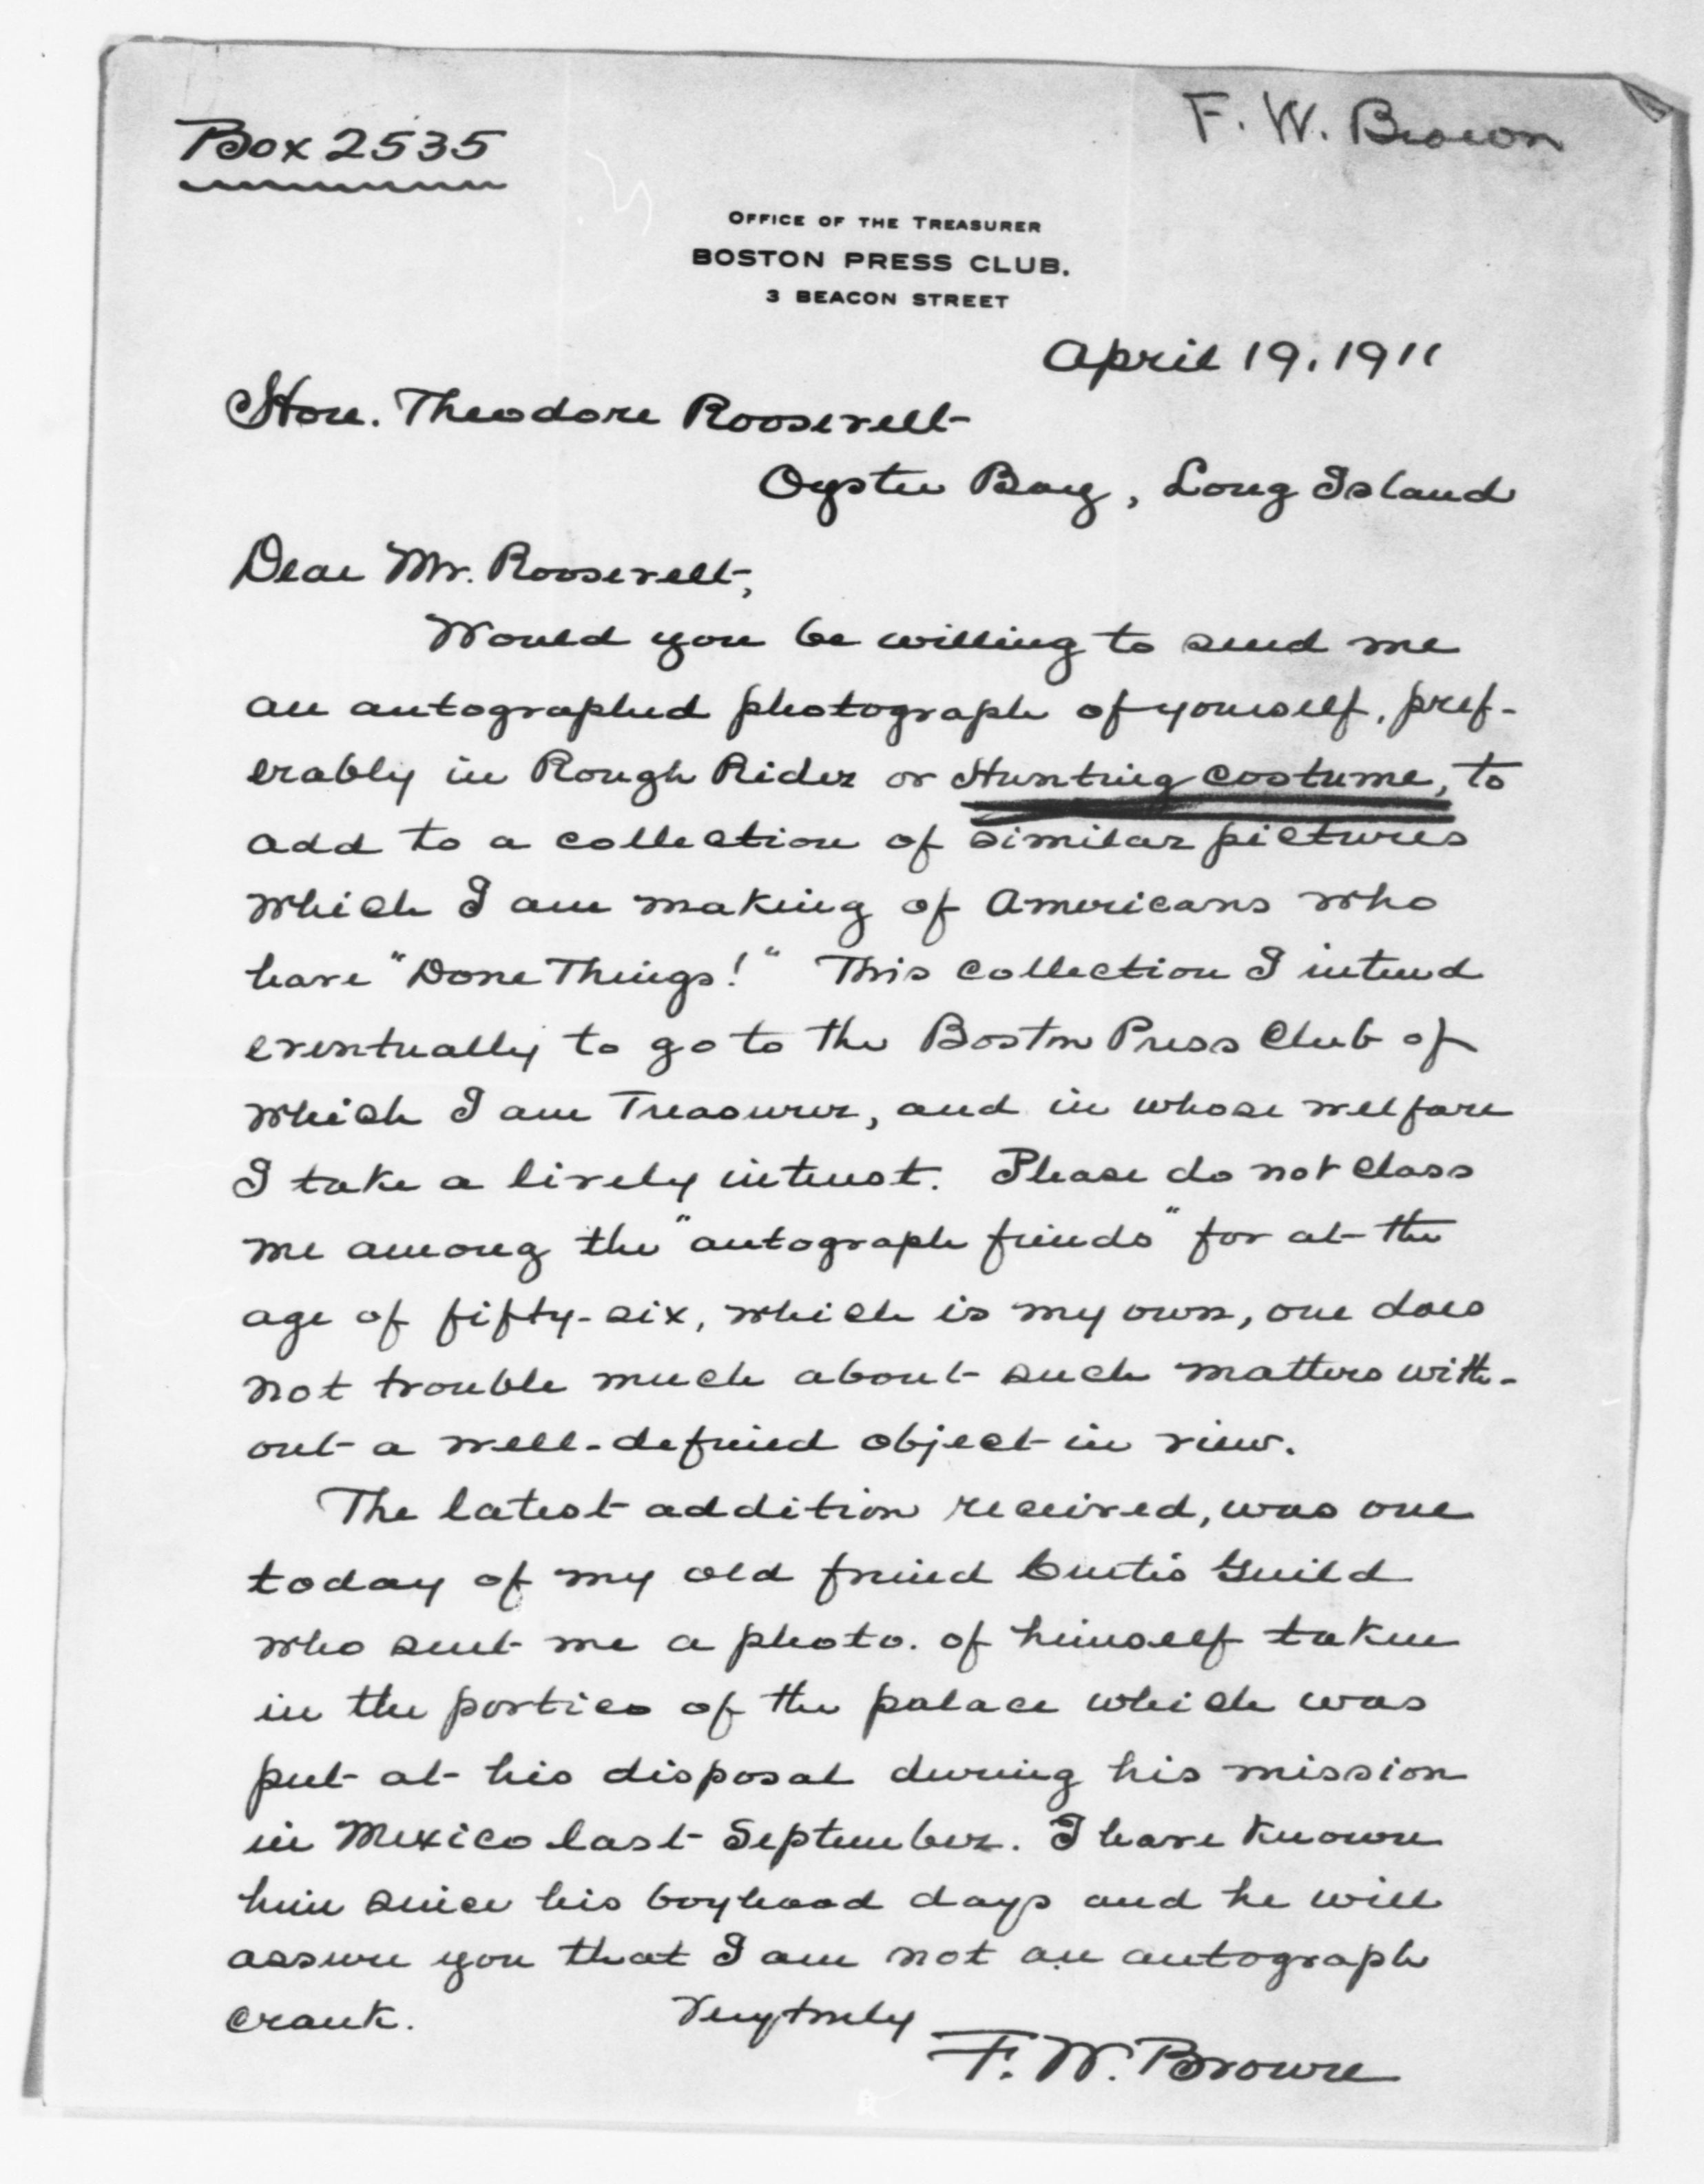 Box 2535
F. W. Brown
OFFICE OF THE TREASURER
BOSTON PRESS CLUB.
3 BEACON STREET
April 19, 1911
Hon. Theodore Roosevelt
Oyster Bay, Long Island
Dear Mr. Roosevelt,
Would you be willing to send me
an autographed photograph of yourself, pref-
erably in Rough Rider or Hunting costume, to
add to a collection of similar pictures
which I am making of Americans who
have "Done Things!" This collection I intend
eventually to go to the Boston Press Club of
which I am Treasurer, and in whose welfare
I take a lively interest. Please do not class
me among the "autograph fiends" for at the
age of fifty-six, which is my own, one does
not trouble much about such matters with-
out a well-defined object in view.
The latest addition received, was one
today of my old friend Curtis Guild
who sent me a photo. of himself taken
in the portico of the palace which was
put at his disposal during his mission
in Mexico last September. I have known
him since his boyhood days and he will
assure you that I am not an autograph
crank. Very truly
F. W. Brown